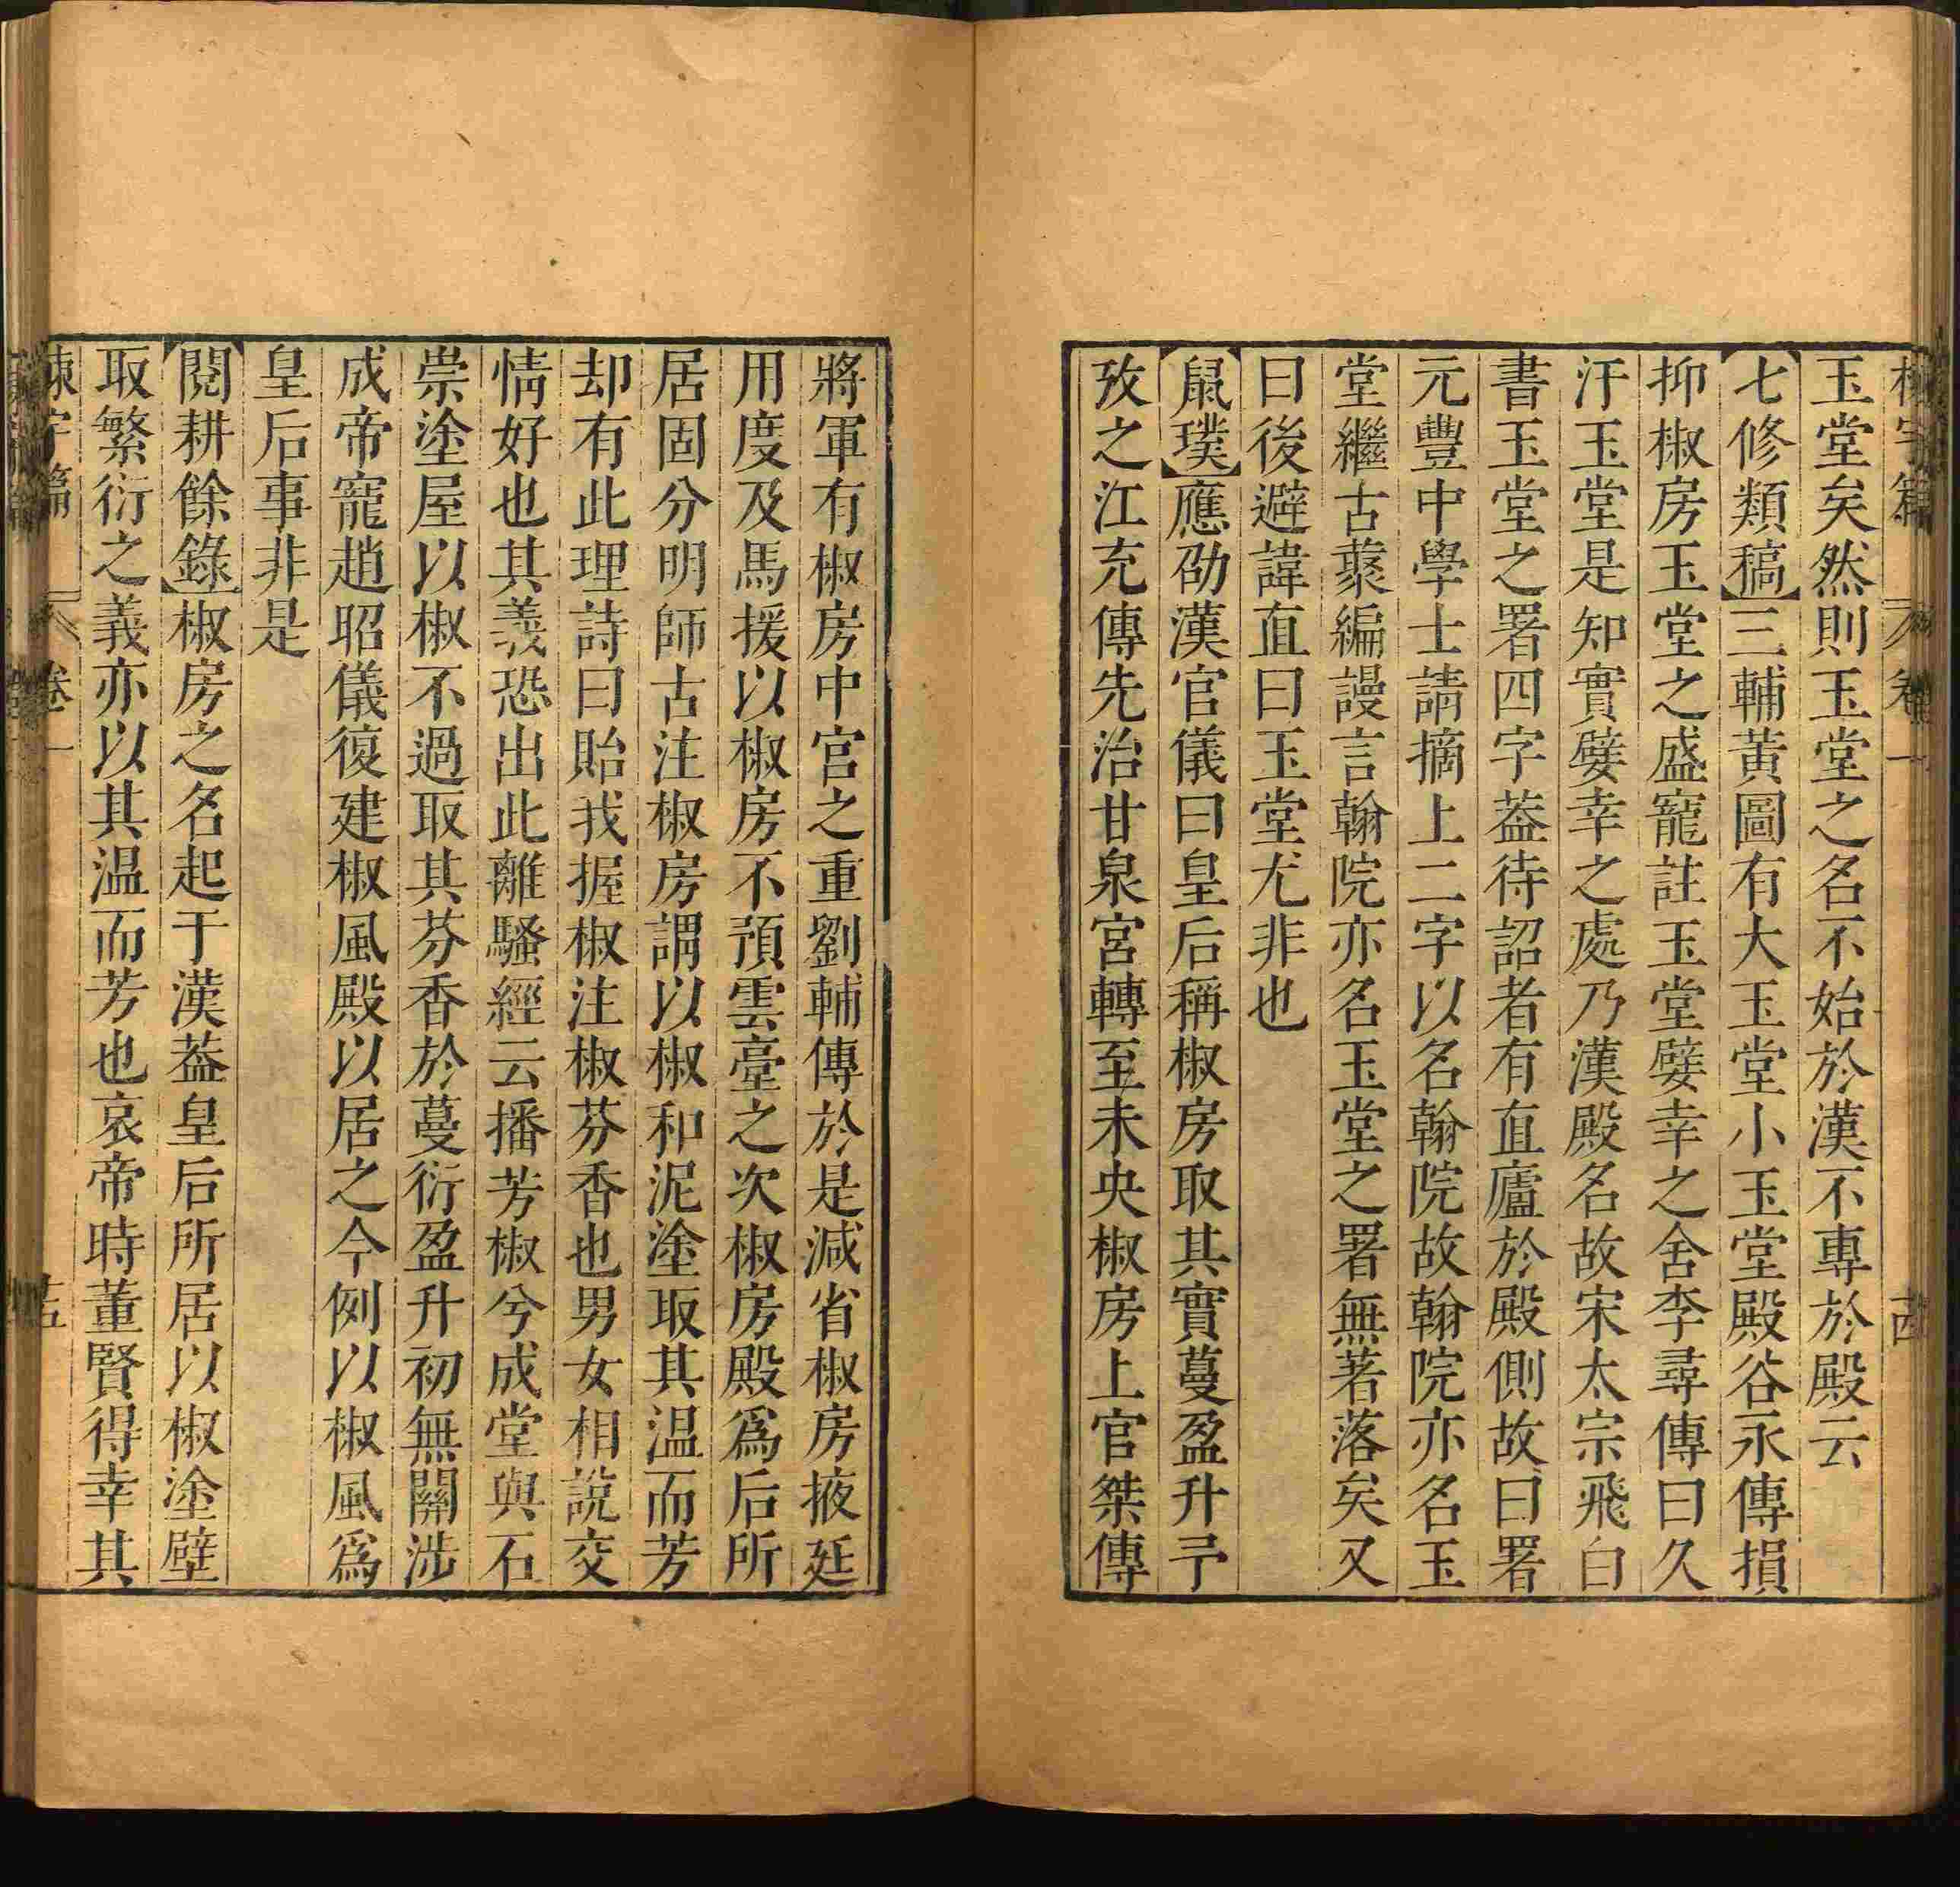 玉堂矣然則玉堂之名不始於漢不專於殿云
七修類稿三輔黃圖有大玉堂小玉堂殿谷永傳損
抑椒房玉堂之盛寵註玉堂嬖幸之舍李尋傳曰久
汙玉堂是知實嬖幸之處乃漢殿名故宋太宗飛白
書玉堂之署四字葢待詔者有直廬於殿側故曰署
元豐中學士請摘上二字以名翰院故翰院亦名玉
堂繼古藂編謾言翰院亦名玉堂之署無著落矣又
曰後避諱直曰玉堂尤非也
鼠璞應劭漢官儀曰皇后稱椒房取其實蔓盈升予
攷之江充傳先治甘泉宮轉至未央椒房上官桀傳
將軍有椒房中宮之重劉輔傳於是減省椒房掖廷
用度及馬援以椒房不預雲臺之次椒房殿爲后所
居固分明師古注椒房謂以椒和泥塗取其温而芳
却有此理詩曰貽我握椒注椒芬香也男女相說交
情好也其義恐出此離騷經云播芳椒兮成堂與石
崇塗屋以椒不過取其芬香於蔓衍盈升初無關涉
成帝寵趙昭儀復建椒風殿以居之今例以椒風爲
皇后事非是
閱耕餘錄椒房之名起于漢葢皇后所居以椒塗壁
取繁衍之義亦以其温而芳也哀帝時董賢得幸其
字篇 卷一